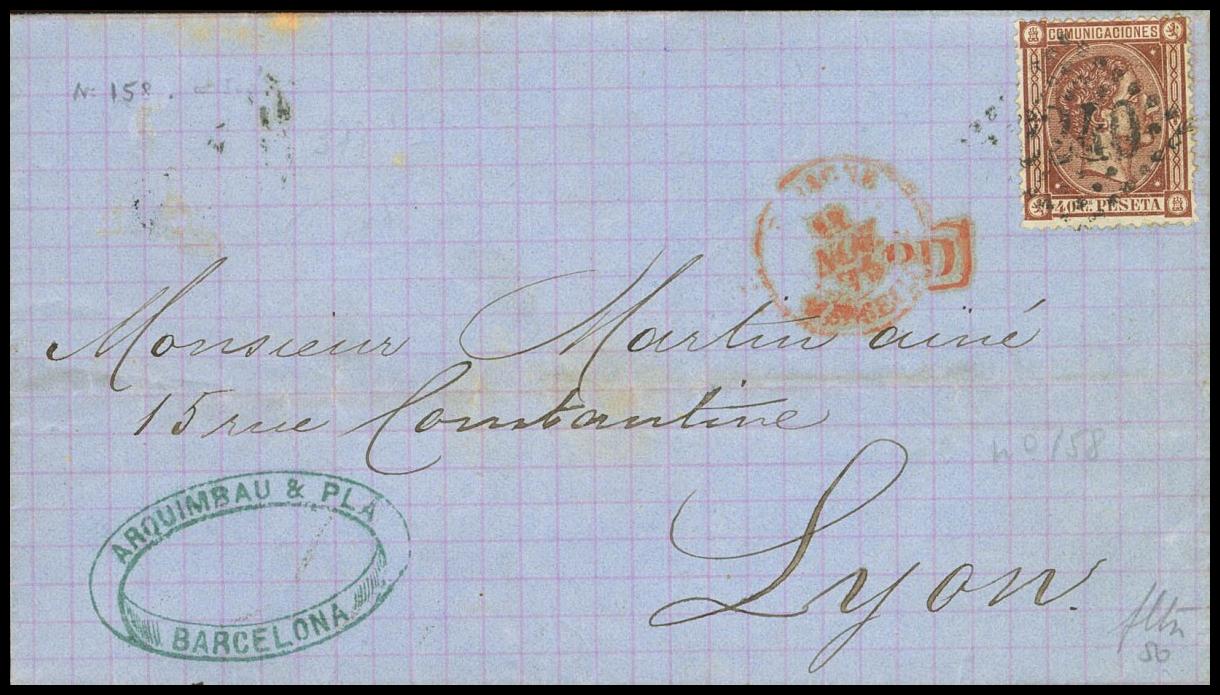 COMUNICACIONES
40 Cs PESETA
Nº 158.
PD
NOV
Monsieur Martin aîné
15 rue Constantine
nº 158
Lyon.
ARQUIMBAU & PLA
BARCELONA